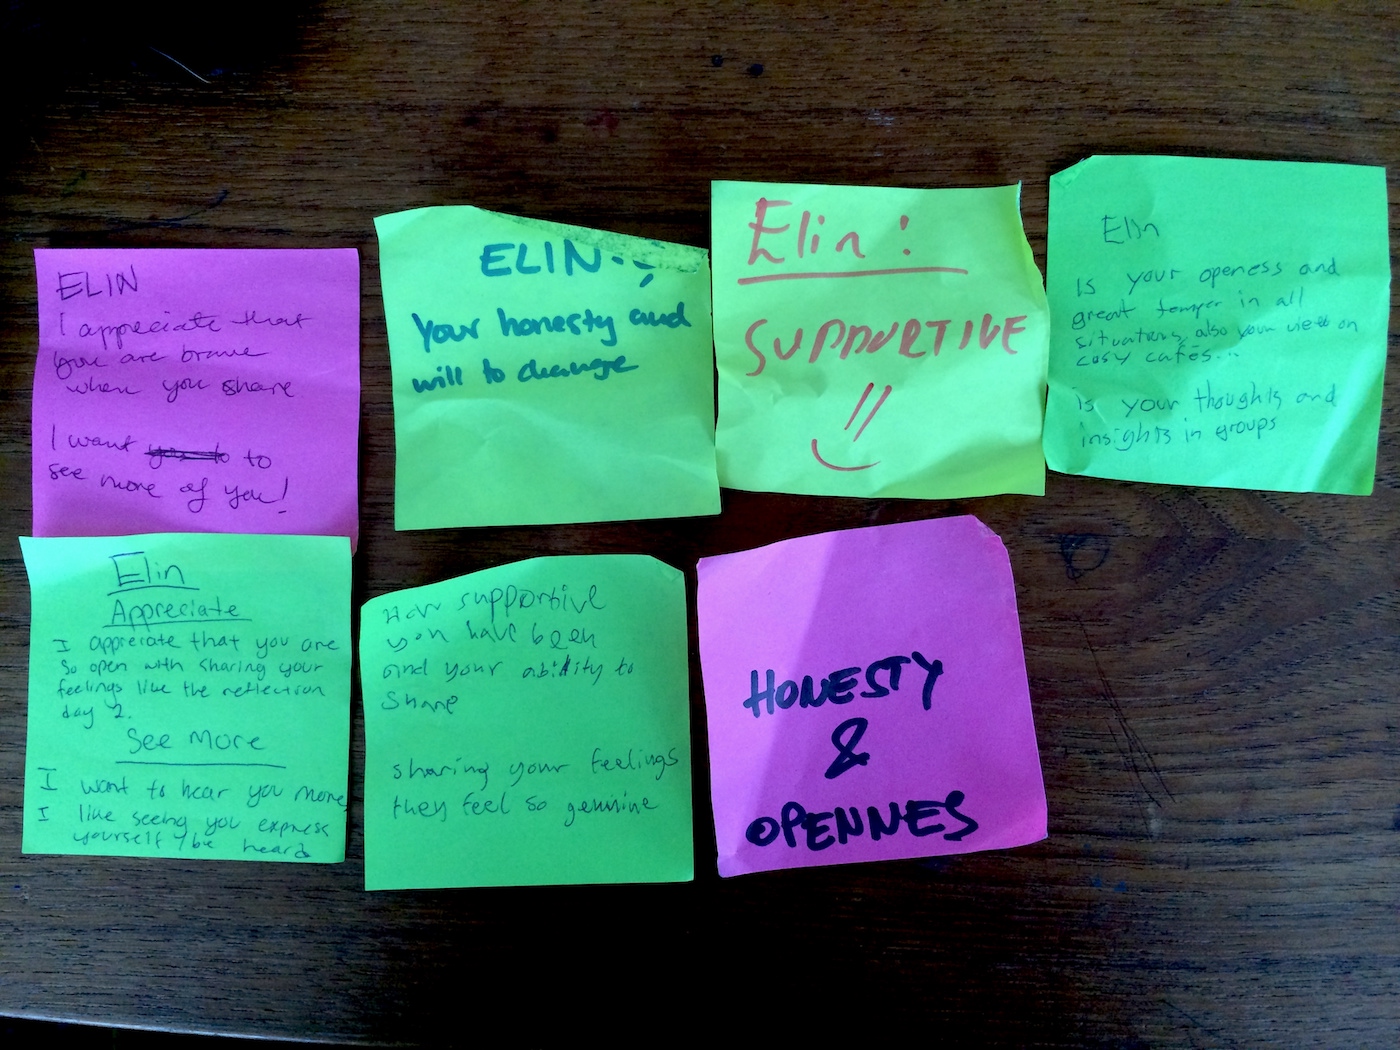 ELIN
I appreciate that
you are brave
when you share
I want to
see more of you!
ELIN
Your honesty and
will to change
Elin:
SUPPORTIVE
Elin
Is your openess and
great temper in all
situations, also your view on
cosy cafés...
Is your thoughts and
insights in groups
Elin
Appreciate
I appreciate that you are
So open with sharing your
feelings like the reflection
day 2.
See More
I want to hear you more
I like seeing you express
yourself / be heard
How supportive
you have been
and your ability to
Share
sharing your feelings
they feel so genuine
HONESTY
&
OPENNES